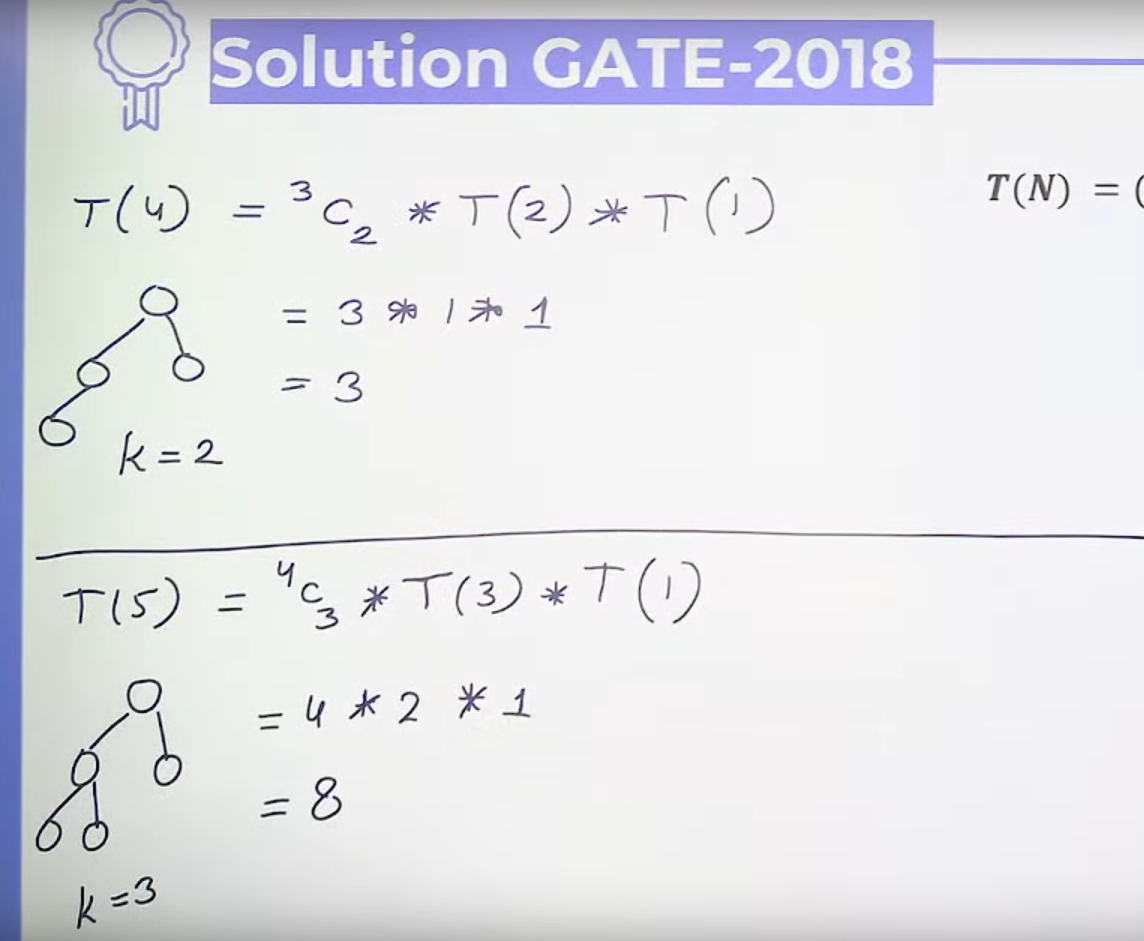 Solution GATE-2018
T(4) = ³C₂ * T(2) * T(1)
T(N) = (
= 3 * 1 * 1
= 3
k = 2
T(5) = ⁴C₃ * T(3) * T(1)
= 4 * 2 * 1
= 8
k = 3